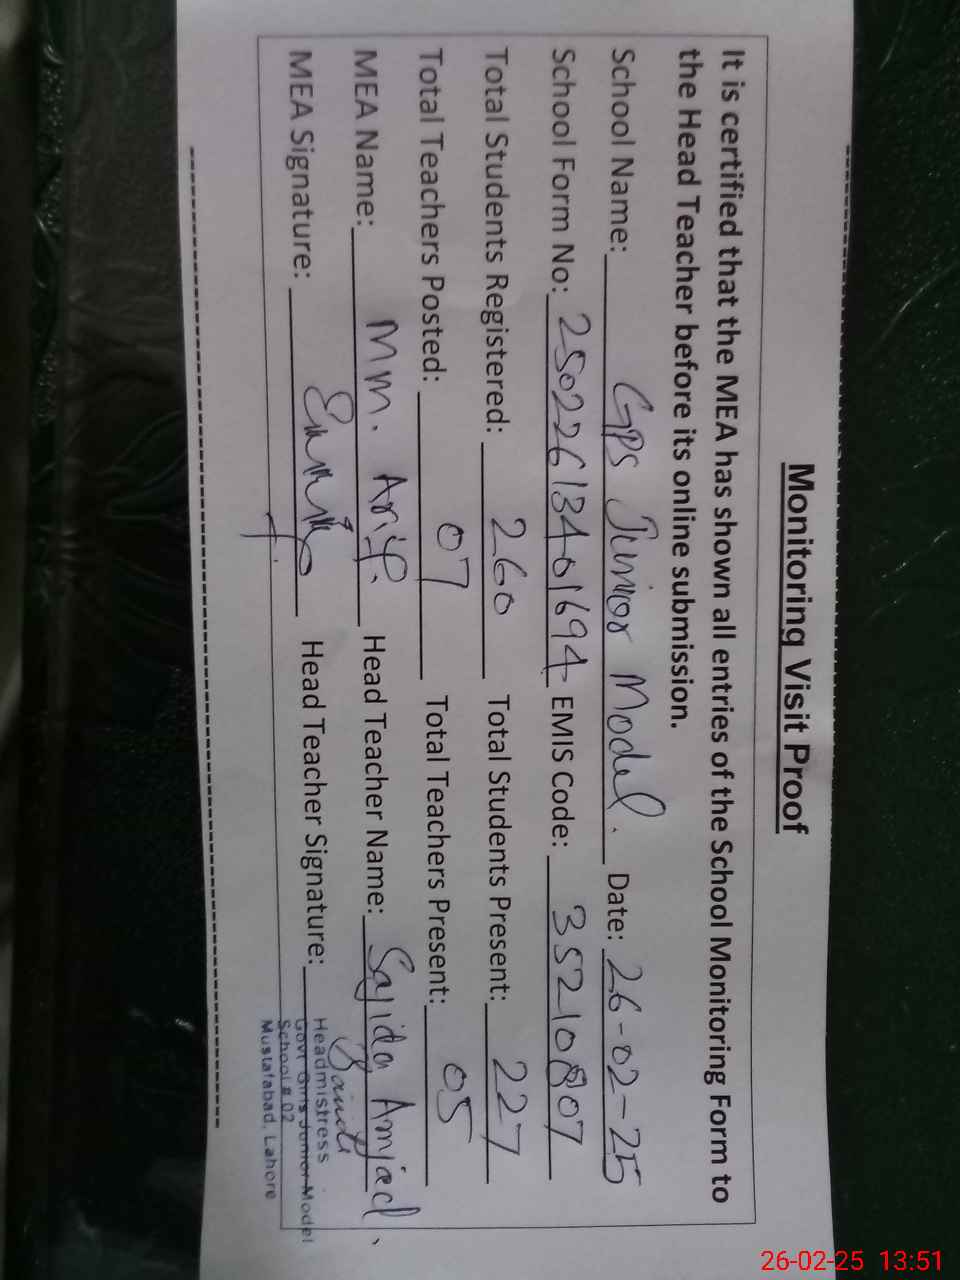 Monitoring Visit Proof
It is certified that the MEA has shown all entries of the School Monitoring Form to
the Head Teacher before its online submission.
School Name: GPS Junior Model. Date: 26-02-25
School Form No: 25022613401694 EMIS Code: 35210807
Total Students Registered: 260 Total Students Present: 227
Total Teachers Posted: 07 Total Teachers Present: 05
MEA Name: Mm. Arif. Head Teacher Name: Sajida Amjad,
MEA Signature: Head Teacher Signature:
Headmistress
Govt Girls Junior Model
School # 02
Mustafabad, Lahore
26-02-25 13:51